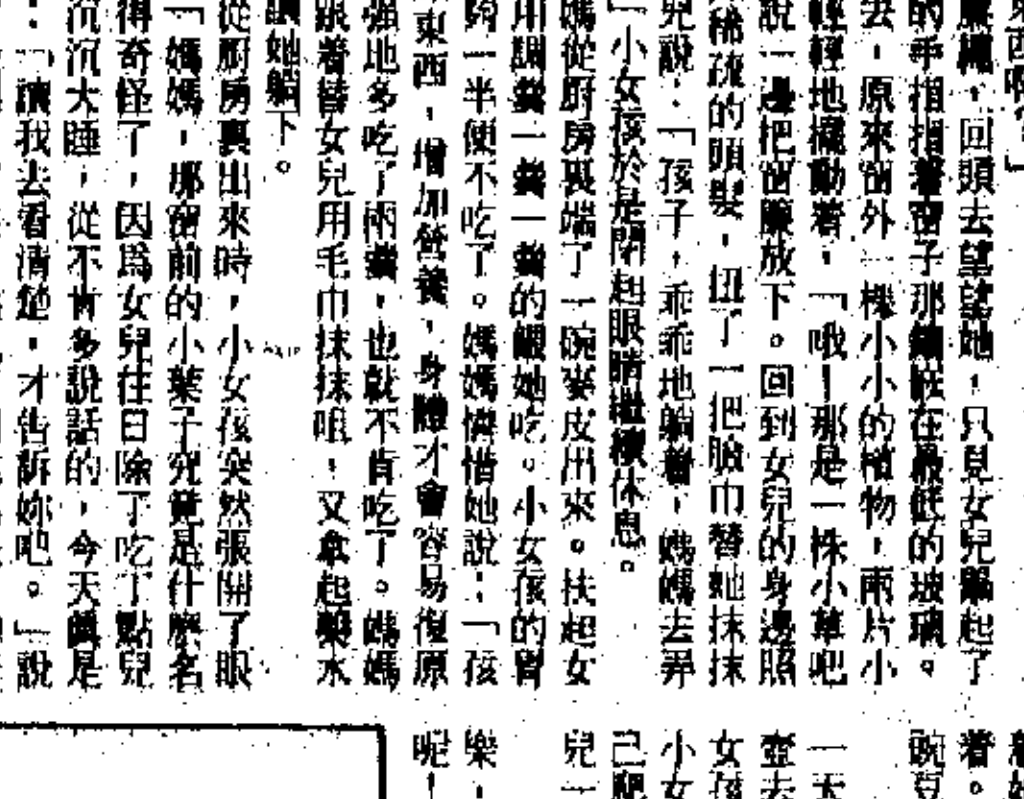 來西啊？」
繩，回頭去望望她，只見女兒起了
的手指指着窗子那鑲嵌在最低的玻璃。
去，原來窗外一棵小小的植物，兩片小
輕輕地擺動着，「哦！那是一株小草吧
說一邊把窗簾放下。回到女兒的身邊照
稀疏的頭髮，扭了一把臉巾替她抹抹
兒說：「孩子，乖乖地躺着，媽媽去弄
」小女孩於是閉起眼睛繼續休息。
媽從厨房裏端了一碗麥皮出來。扶起女
用調羹一羹一羹的餵她吃。小女孩的胃
夠一半便不吃了。媽媽憐惜她說：「孩
東西，增加營養，身體才會容易復原
強地多吃了兩羹，也就不肯吃了。媽媽
跟着替女兒用毛巾抹抹咀，又拿起藥水
讓她躺下。
從厨房裏出來時，小女孩突然張開了眼
「媽媽，那窗前的小葉子究竟是什麼名
得奇怪了，因爲女兒往日除了吃了點兒
沉沉大睡，從不肯多說話的，今天眞是
：「讓我去看清楚，才告訴妳吧。」說
着。
豌豆
一天
壺去
女孩
小女
己爬
兒一
樂，
呢！